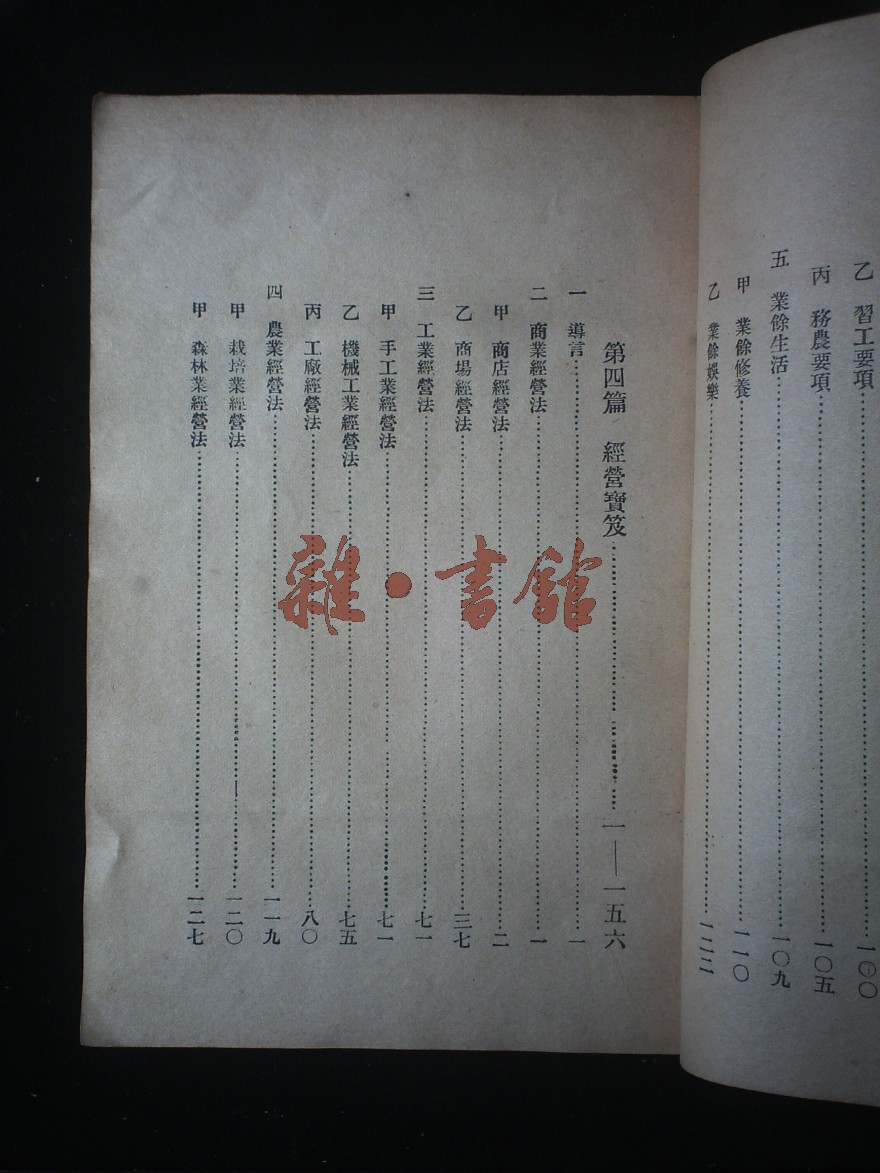 乙 習工要項……一〇〇
丙 務農要項……一〇五
五 業餘生活……一〇九
甲 業餘修養……一一〇
乙 業餘娛樂……一二二
第四篇 經營寶笈……一——一五六
一 導言……一
二 商業經營法……一
甲 商店經營法……二
乙 商場經營法……三七
三 工業經營法……七一
甲 手工業經營法……七一
乙 機械工業經營法……七五
丙 工廠經營法……八〇
四 農業經營法……一一九
甲 栽培業經營法……一二〇
甲 森林業經營法……一二七
雜·書館